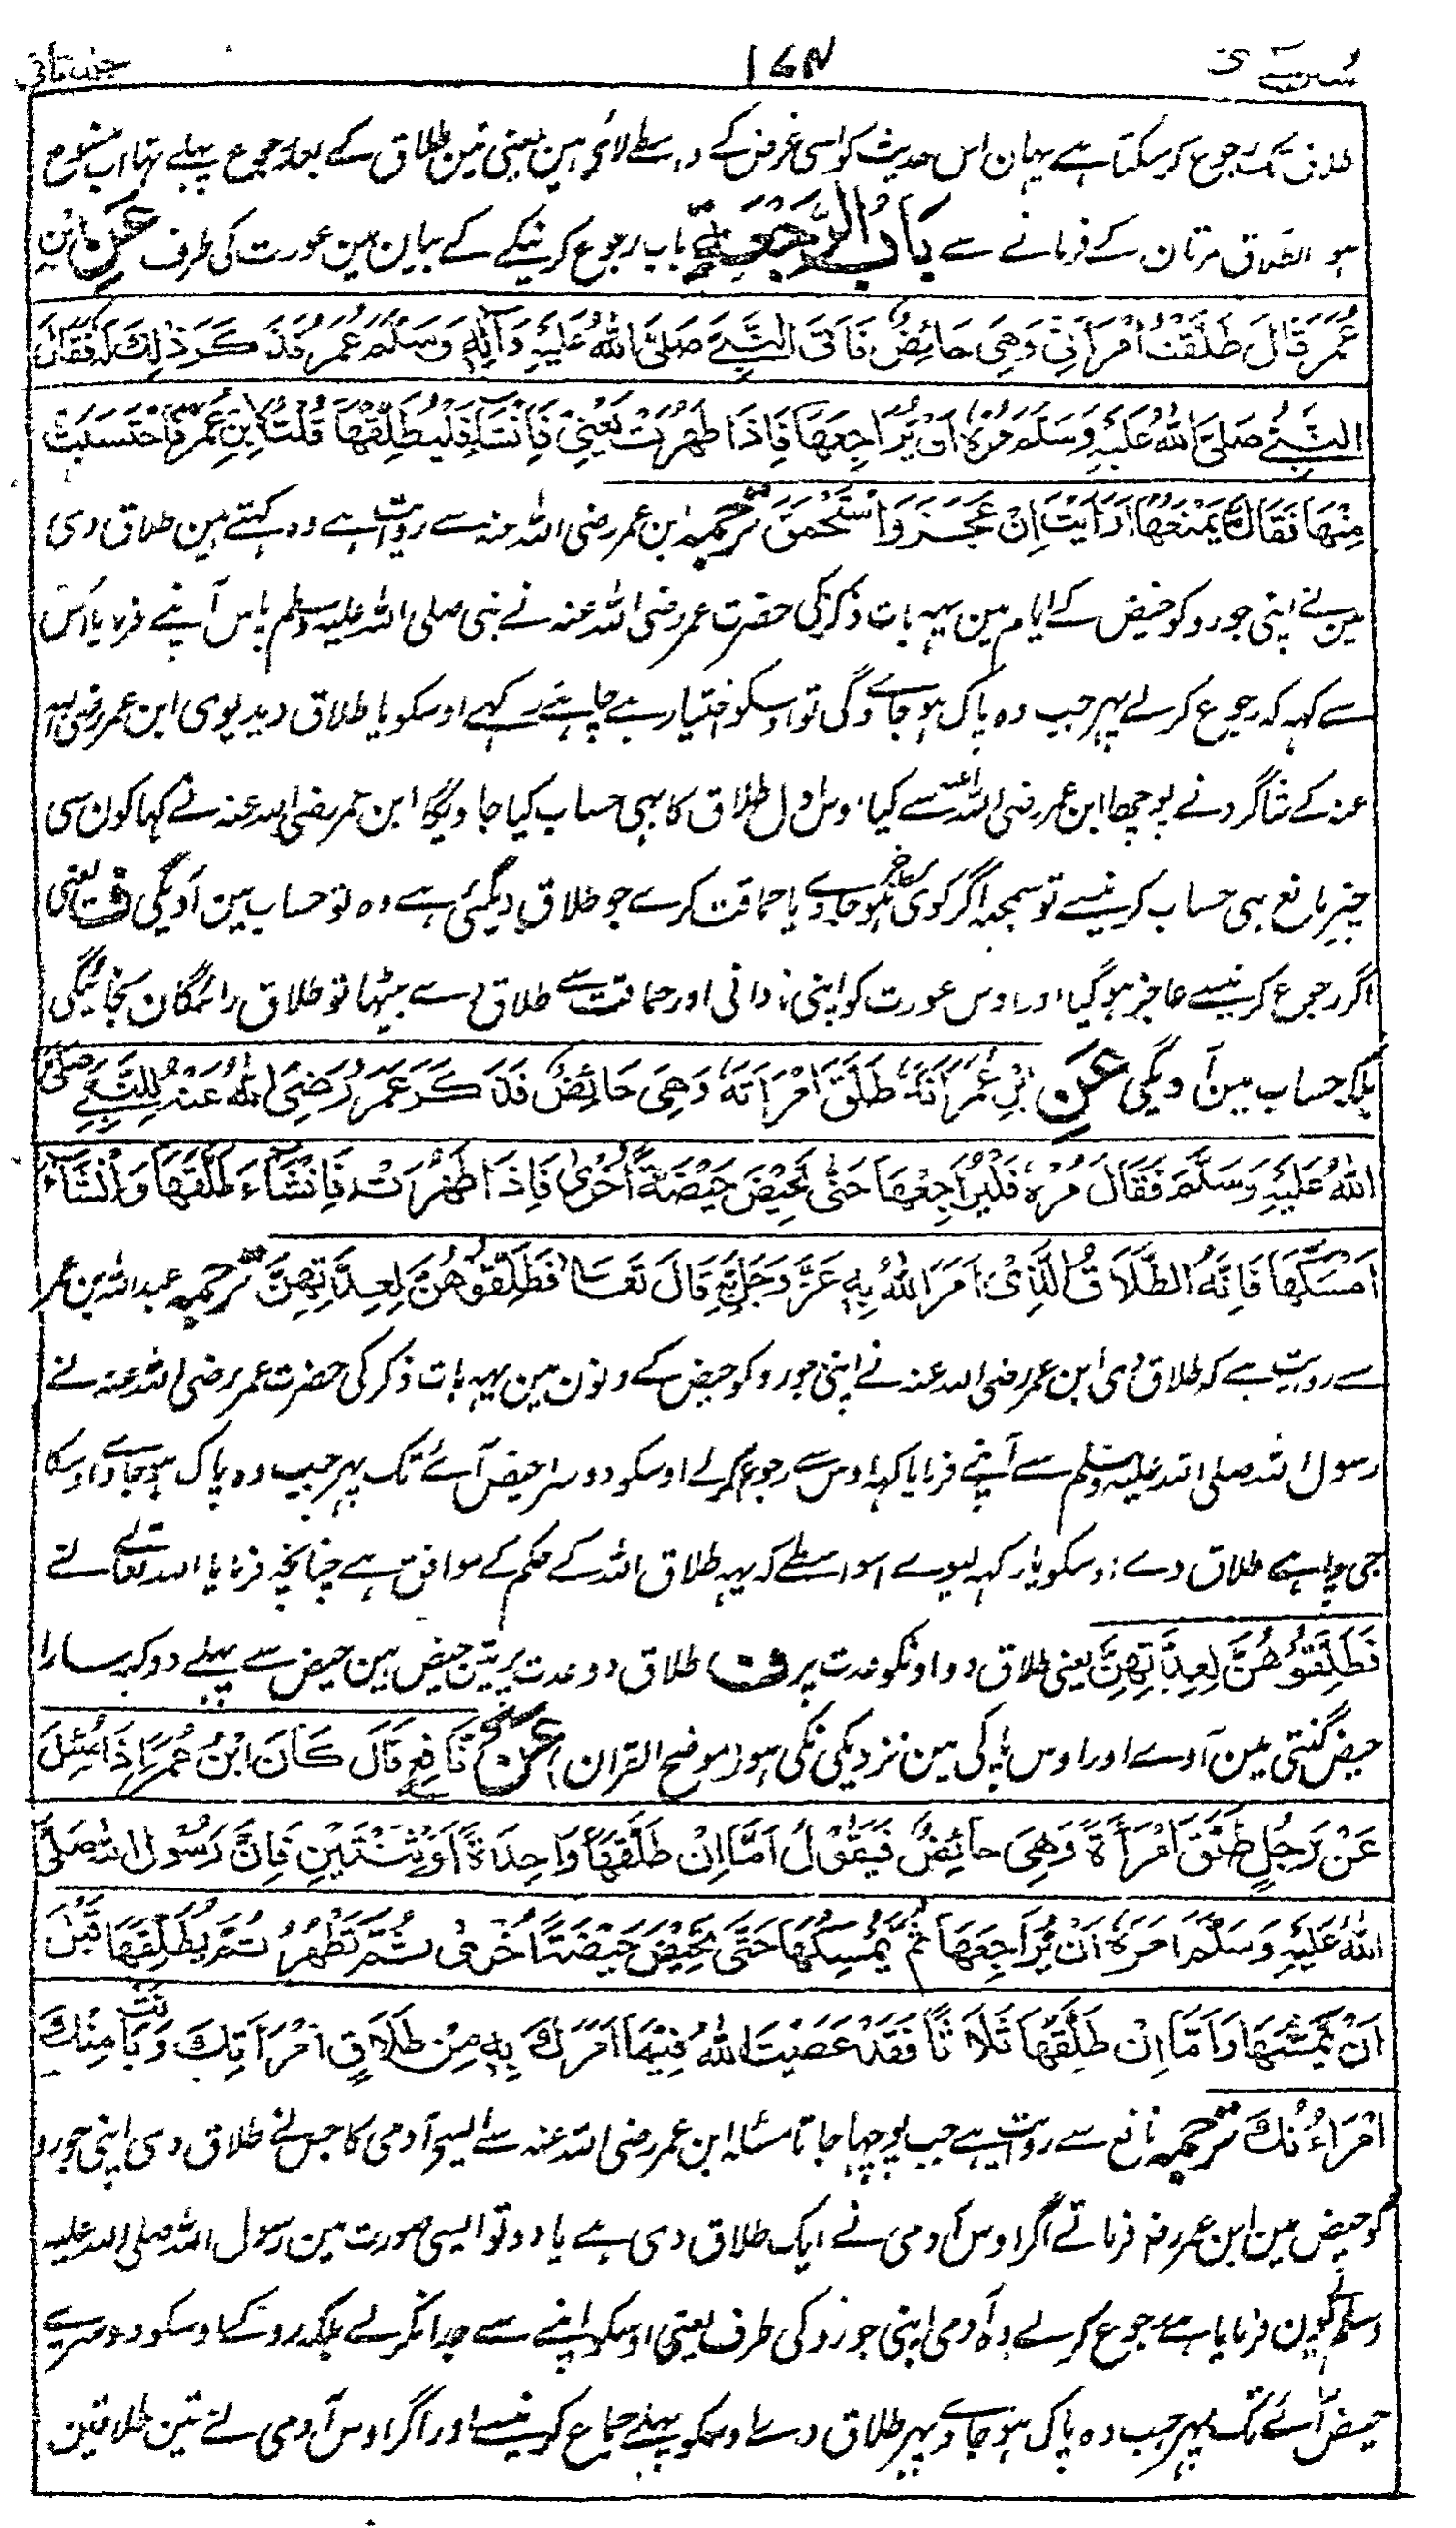 ۱۷۴
طلاق تک رجوع کر سکتا ہے یہان اس حدیث کو اسی غرض کے واسطے لائے ہین یعنی تین طلاق کے بعد رجوع پہلے تہا اب منسوخ
ہو الطلاق مرتان کے فرمانے سے بَابُ الرَّجْعَةِ باب رجوع کرنیکے کے بیان مین عورت کی طرف عَنِ ابْنِ
عُمَرَ قَالَ طَلَّقْتُ امْرَأَتِي وَهِيَ حَائِضٌ فَأَتَى النَّبِيَّ صَلَّى اللهُ عَلَيْهِ وَآلِهِ وَسَلَّمَ عُمَرُ فَذَكَرَ ذٰلِكَ لَهُ فَقَالَ
النَّبِيُّ صَلَّى اللهُ عَلَيْهِ وَسَلَّمَ مُرْهُ أَنْ يُرَاجِعَهَا فَإِذَا طَهُرَتْ يَعْنِي فَإِنْ شَاءَ فَلْيُطَلِّقْهَا قُلْتُ لِابْنِ عُمَرَ فَاحْتَسَبْتَ
مِنْهَا فَقَالَ مَا يَمْنَعُهَا أَرَأَيْتَ إِنْ عَجَزَ وَاسْتَحْمَقَ ترجمہ ابن عمر رضی اللہ عنہ سے روایت ہے وہ کہتے ہین طلاق دی
مین نے اپنی جورو کو حیض کے ایام مین یہہ بات ذکر کی حضرت عمر رضی اللہ عنہ نے نبی صلی اللہ علیہ وسلم پاس آپنے فرمایا اُس
سے کہہ کہ رجوع کرلے پہر جب وہ پاک ہو جاوے گی تو اوسکو اختیار ہے چاہئے رکہے اوسکو یا طلاق دیدیوی ابن عمر رضی اللہ
عنہ کے شاگرد نے پوچھا ابن عمر رضی اللہ عنہ سے کیا اوس اول طلاق کا بہی حساب کیا جاویگا ابن عمر رضی اللہ عنہ نے کہا کون سی
چیز مانع ہی حساب کرنیسے تو سمجہہ اگر کوی عاجز ہو جاوے یا حماقت کرے جو طلاق دیگئی ہے وہ تو حساب مین آویگی ف یعنی
اگر رجوع کرنیسے عاجز ہو گیا اور اوس عورت کو اپنی نادانی اور حماقت سے طلاق دے بیٹہا تو طلاق رائگان نجائیگی
بلکہ حساب مین آویگی عَنِ ابْنِ عُمَرَ أَنَّهُ طَلَّقَ امْرَأَتَهُ وَهِيَ حَائِضٌ فَذَكَرَ عُمَرُ رَضِيَ اللهُ عَنْهُ لِلنَّبِيِّ صَلَّى
اللهُ عَلَيْهِ وَسَلَّمَ فَقَالَ مُرْهُ فَلْيُرَاجِعْهَا حَتَّى تَحِيْضَ حَيْضَةً أُخْرٰى فَإِذَا طَهُرَتْ فَإِنْ شَاءَ طَلَّقَهَا وَإِنْ شَاءَ
أَمْسَكَهَا فَإِنَّهُ الطَّلَاقُ الَّذِيْ أَمَرَ اللهُ بِهِ عَزَّ وَجَلَّ قَالَ تَعَالٰى فَطَلِّقُوْهُنَّ لِعِدَّتِهِنَّ ترجمہ عبداللہ بن عمر
سے روایت ہے کہ طلاق دی ابن عمر رضی اللہ عنہ نے اپنی جورو کو حیض کے دنون مین یہہ بات ذکر کی حضرت عمر رضی اللہ عنہ نے
رسول اللہ صلی اللہ علیہ وسلم سے آپنے فرمایا کہہ اوس سے رجوع کرلے اوسکو دوسرا حیض آئے تک پہر جب وہ پاک ہو جاوے اوسکا
جی چاہے طلاق دے اوسکو یا رکہہ لیوے اسواسطے کہ یہہ طلاق اللہ کے حکم کے موافق ہے چنانچہ فرمایا اللہ تعالے نے
فَطَلِّقُوْهُنَّ لِعِدَّتِهِنَّ یعنی طلاق دو اونکو عدت پر ف طلاق دو عدت پر یعنی تین حیض ہین حیض سے پہلے دو کہ سارا
حیض گنتی مین آوے اور اوس پاکی مین نزدیکی نکی ہو (موضح القران) عَنْ نَافِعٍ قَالَ كَانَ ابْنُ عُمَرَ إِذَا سُئِلَ
عَنْ رَجُلٍ طَلَّقَ امْرَأَةً وَهِيَ حَائِضٌ فَيَقُوْلُ أَمَّا إِنْ طَلَّقَهَا وَاحِدَةً أَوْ ثِنْتَيْنِ فَإِنَّ رَسُوْلَ اللهِ صَلَّى
اللهُ عَلَيْهِ وَسَلَّمَ أَمَرَهُ أَنْ يُرَاجِعَهَا ثُمَّ يُمْسِكُهَا حَتَّى تَحِيْضَ حَيْضَةً أُخْرٰى ثُمَّ تَطْهُرُ ثُمَّ يُطَلِّقُهَا قَبْلَ
أَنْ يَمَسَّهَا وَأَمَّا إِنْ طَلَّقَهَا ثَلَاثًا فَقَدْ عَصَيْتَ اللهَ فِيْمَا أَمَرَكَ بِهِ مِنْ طَلَاقِ امْرَأَتِكَ وَبَانَتْ مِنْكَ
امْرَأَتُكَ ترجمہ نافع سے روایت ہے جب پوچہا جاتا مسئلہ ابن عمر رضی اللہ عنہ سے ایسے آدمی کا جس نے طلاق دی اپنی جورو
کو حیض مین ابن عمر رضہ فرماتے اگر اوس آدمی نے ایک طلاق دی ہے یا دو تو ایسی صورت مین رسول اللہ صلی اللہ علیہ
وسلم نے یون فرمایا ہے رجوع کرلے وہ آدمی اپنی جورو کی طرف یعنی اوسکو اپنے سے جدا نکرے بلکہ روکے اوسکو دوسرے
حیض آئے تک پہر جب وہ پاک ہو جاوے پہر طلاق دے اوسکو پہلے جماع کرنیسے اور اگر اوس آدمی نے تین طلاقین